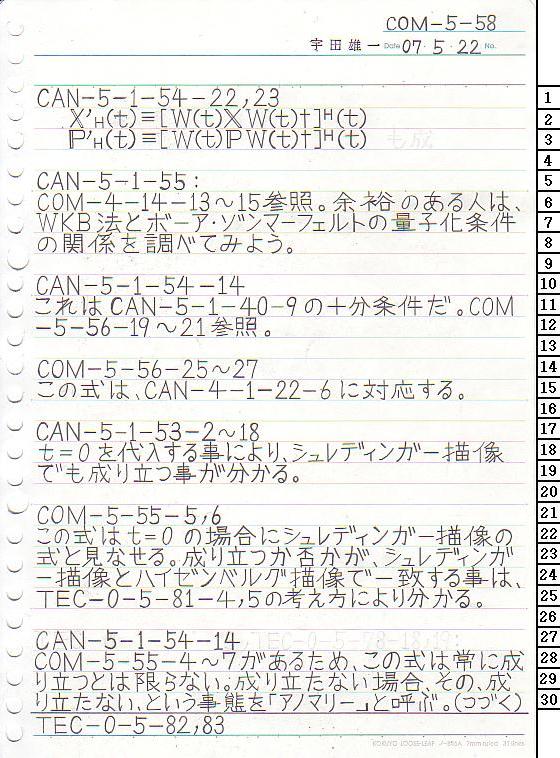 COM-5-58
宇田雄一 Date 07・5・22 No.
CAN-5-1-54-22,23
𝕏'H(t)≡[W(t)𝕏W(t)†]ᴴ(t)
ℙ'H(t)≡[W(t)ℙW(t)†]ᴴ(t)
CAN-5-1-55:
COM-4-14-13〜15参照。余裕のある人は、
WKB法とボーア・ゾンマーフェルトの量子化条件
の関係を調べてみよう。
CAN-5-1-54-14
これはCAN-5-1-40-9の十分条件だ。COM
-5-56-19〜21参照。
COM-5-56-25〜27
この式は、CAN-4-1-22-6に対応する。
CAN-5-1-53-2〜18
t=0を代入する事により、シュレディンガー描像
でも成り立つ事が分かる。
COM-5-55-5,6
この式はt=0の場合にシュレディンガー描像の
式と見なせる。成り立つか否かが、シュレディンガ
ー描像とハイゼンベルグ描像で一致する事は、
TEC-0-5-81-4,5の考え方により分かる。
CAN-5-1-54-14
COM-5-55-4〜7があるため、この式は常に成
り立つとは限らない。成り立たない場合、その、成
り立たない、という事態を「アノマリー」と呼ぶ。(つづく)
TEC-0-5-82,83
KOKUYO LOOSE-LEAF ノ-816A 7mm ruled 31 lines
1
2
3
4
5
6
7
8
9
10
11
12
13
14
15
16
17
18
19
20
21
22
23
24
25
26
27
28
29
30